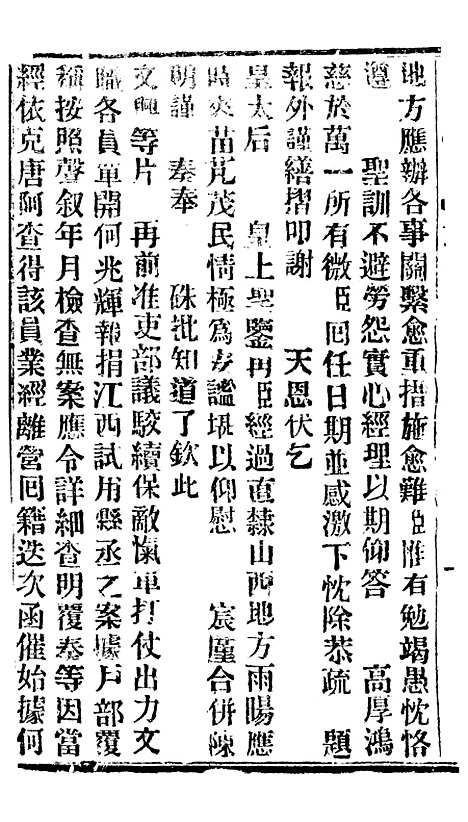 地方應辦各事關繫愈重措施愈難臣惟有勉竭愚忱恪
遵　　聖訓不避勞怨實心經理以期仰答　　高厚鴻
慈於萬一所有微臣囘任日期並感激下忱除恭疏　題
報外謹繕摺叩謝　　天恩伏乞
皇太后　　皇上聖鑒再臣經過直隸山西地方雨暘應
時炎苗芃茂民情極爲安謐堪以仰慰　　宸廑合併陳
明謹　奏奉　硃批知道了欽此
文興等片　再前准吏部議駁續保敵愾軍打仗出力文
職各員單開何兆輝報捐江西試用縣丞之案據戶部覆
稱按照聲叙年月檢查無案應令詳細查明覆奏等因當
經依克唐阿查得該員業經離營囘籍迭次函催始據何